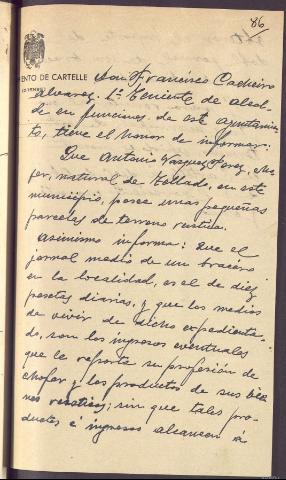 86
MENTO DE CARTELLE
Don Francisco Cacheiro
Alvarez, 1º Teniente de alcal-
de en funciones de este ayuntamien-
to, tiene el honor de informar:
Que Antonio Vazquez Perez, cho-
fer, natural de Zellado, en este
municipio, posee unas pequeñas
parcelas de terreno rustica.
Asimismo informa: Que el
jornal medio de un bracero
en la localidad, es el de diez
pesetas diarias, y que los medios
de vivir de dicho expedienta-
do, son los ingresos eventuales
que le reporte su profesión de
chofer y los productos de sus bie-
nes rusticos; sin que tales pro-
ductos é ingresos alcancen á